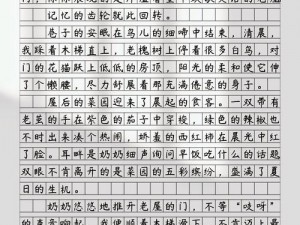 记忆的齿轮就此回转。
巷子的安眠在鸟儿的细啼中结束,清晨,
我踩着木梯直上,老槐树上停着很多白鸟,对
门的花猫跃上低低的房顶,阳光的柔和使它伸
了个懒腰,尽力舒展着那充满倦意的身子。
屋后的菜园迎来了晨起的食客。一双带有
老茧的手在紫色的茄子中穿梭,绿色的辣椒也
不时出来凑个热闹,娇羞的西红柿在晨光中红
了脸。耳畔是奶奶细声询问早饭吃什么的话题
双眼不肯离开的是菜园的五彩缤纷,盛满了夏
日的生机。
奶奶悠悠地推开老屋的门,不等“吱呀”
的声音响起,我便顺着木梯滑下,不肯迈上最